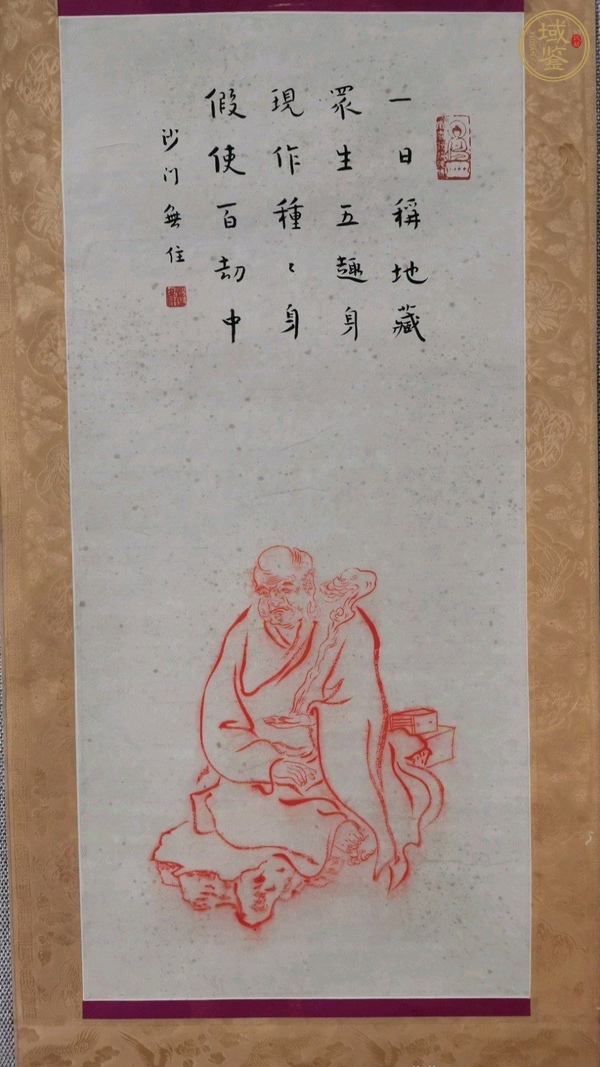 一日稱地藏
眾生五趣身
現作種〻身
假使百劫中
沙门無住
域鉴